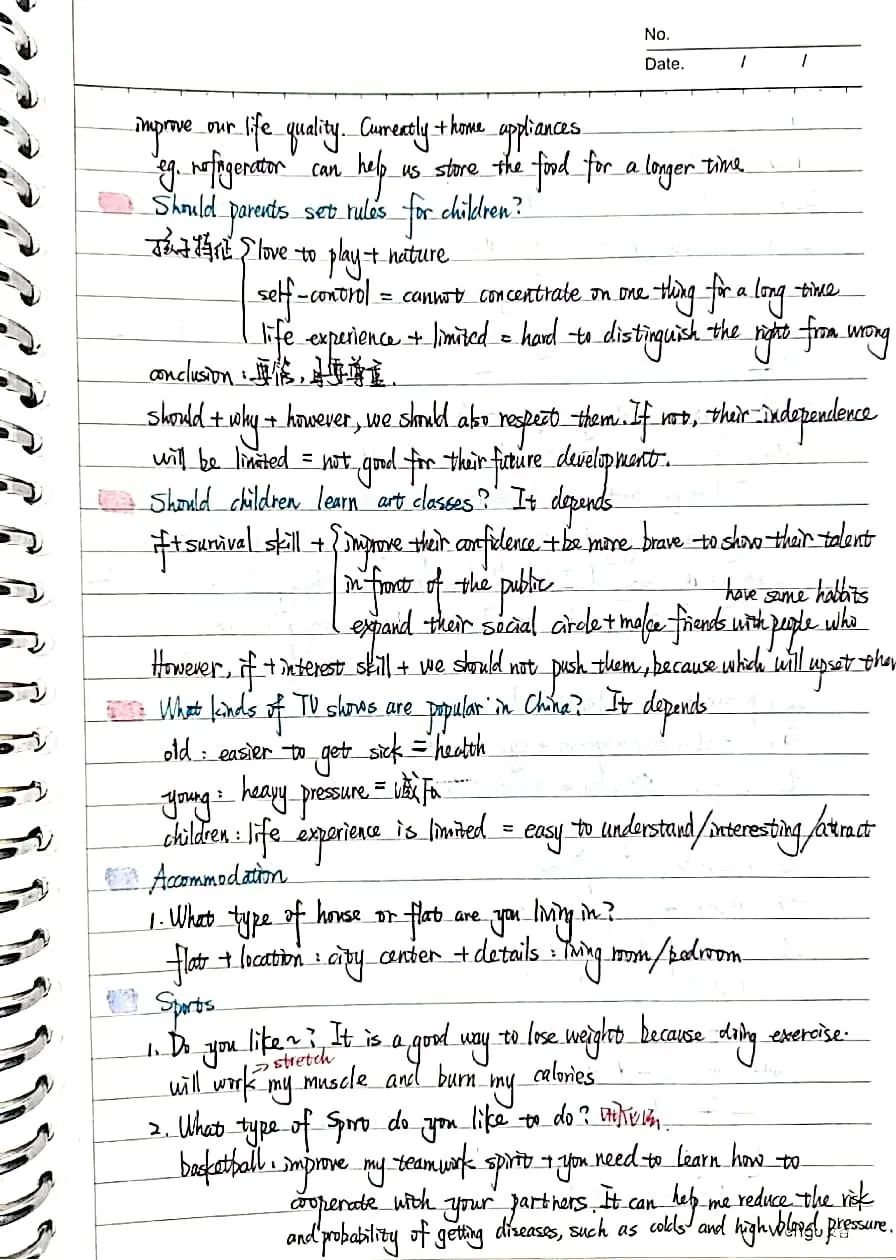 No.
Date. / /
improve our life quality. Currently + home appliances
eg. refrigerator can help us store the food for a longer time
Should parents set rules for children?
孩子特征 { love to play + nature
self-control = cannot concentrate on one thing for a long time
life experience + limited = hard to distinguish the right from wrong
conclusion: 要管,
should + why + however, we should also respect them. If not, their independence
will be limited = not good for their future development.
Should children learn art classes? It depends
if + survival skill + { improve their confidence + be more brave to show their talent
in front of the public
have same habbits
expand their social circle + make friends with people who
However, if + interest skill + we should not push them, because which will upset them
What kinds of TV shows are popular in China? It depends
old: easier to get sick = health
young: heavy pressure = 减压
children: life experience is limited = easy to understand/interesting/attract
Accommodation
1. What type of house or flat are you living in?
flat + location: city center + details: living room/bedroom
Sports
1. Do you like ~? It is a good way to lose weight because doing exercise.
→ stretch
will work my muscle and burn my calories
2. What type of Sport do you like to do?
basketball: improve my teamwork spirit + you need to learn how to
cooperate with your partners. It can help me reduce the risk
and probability of getting diseases, such as colds and high blood pressure.